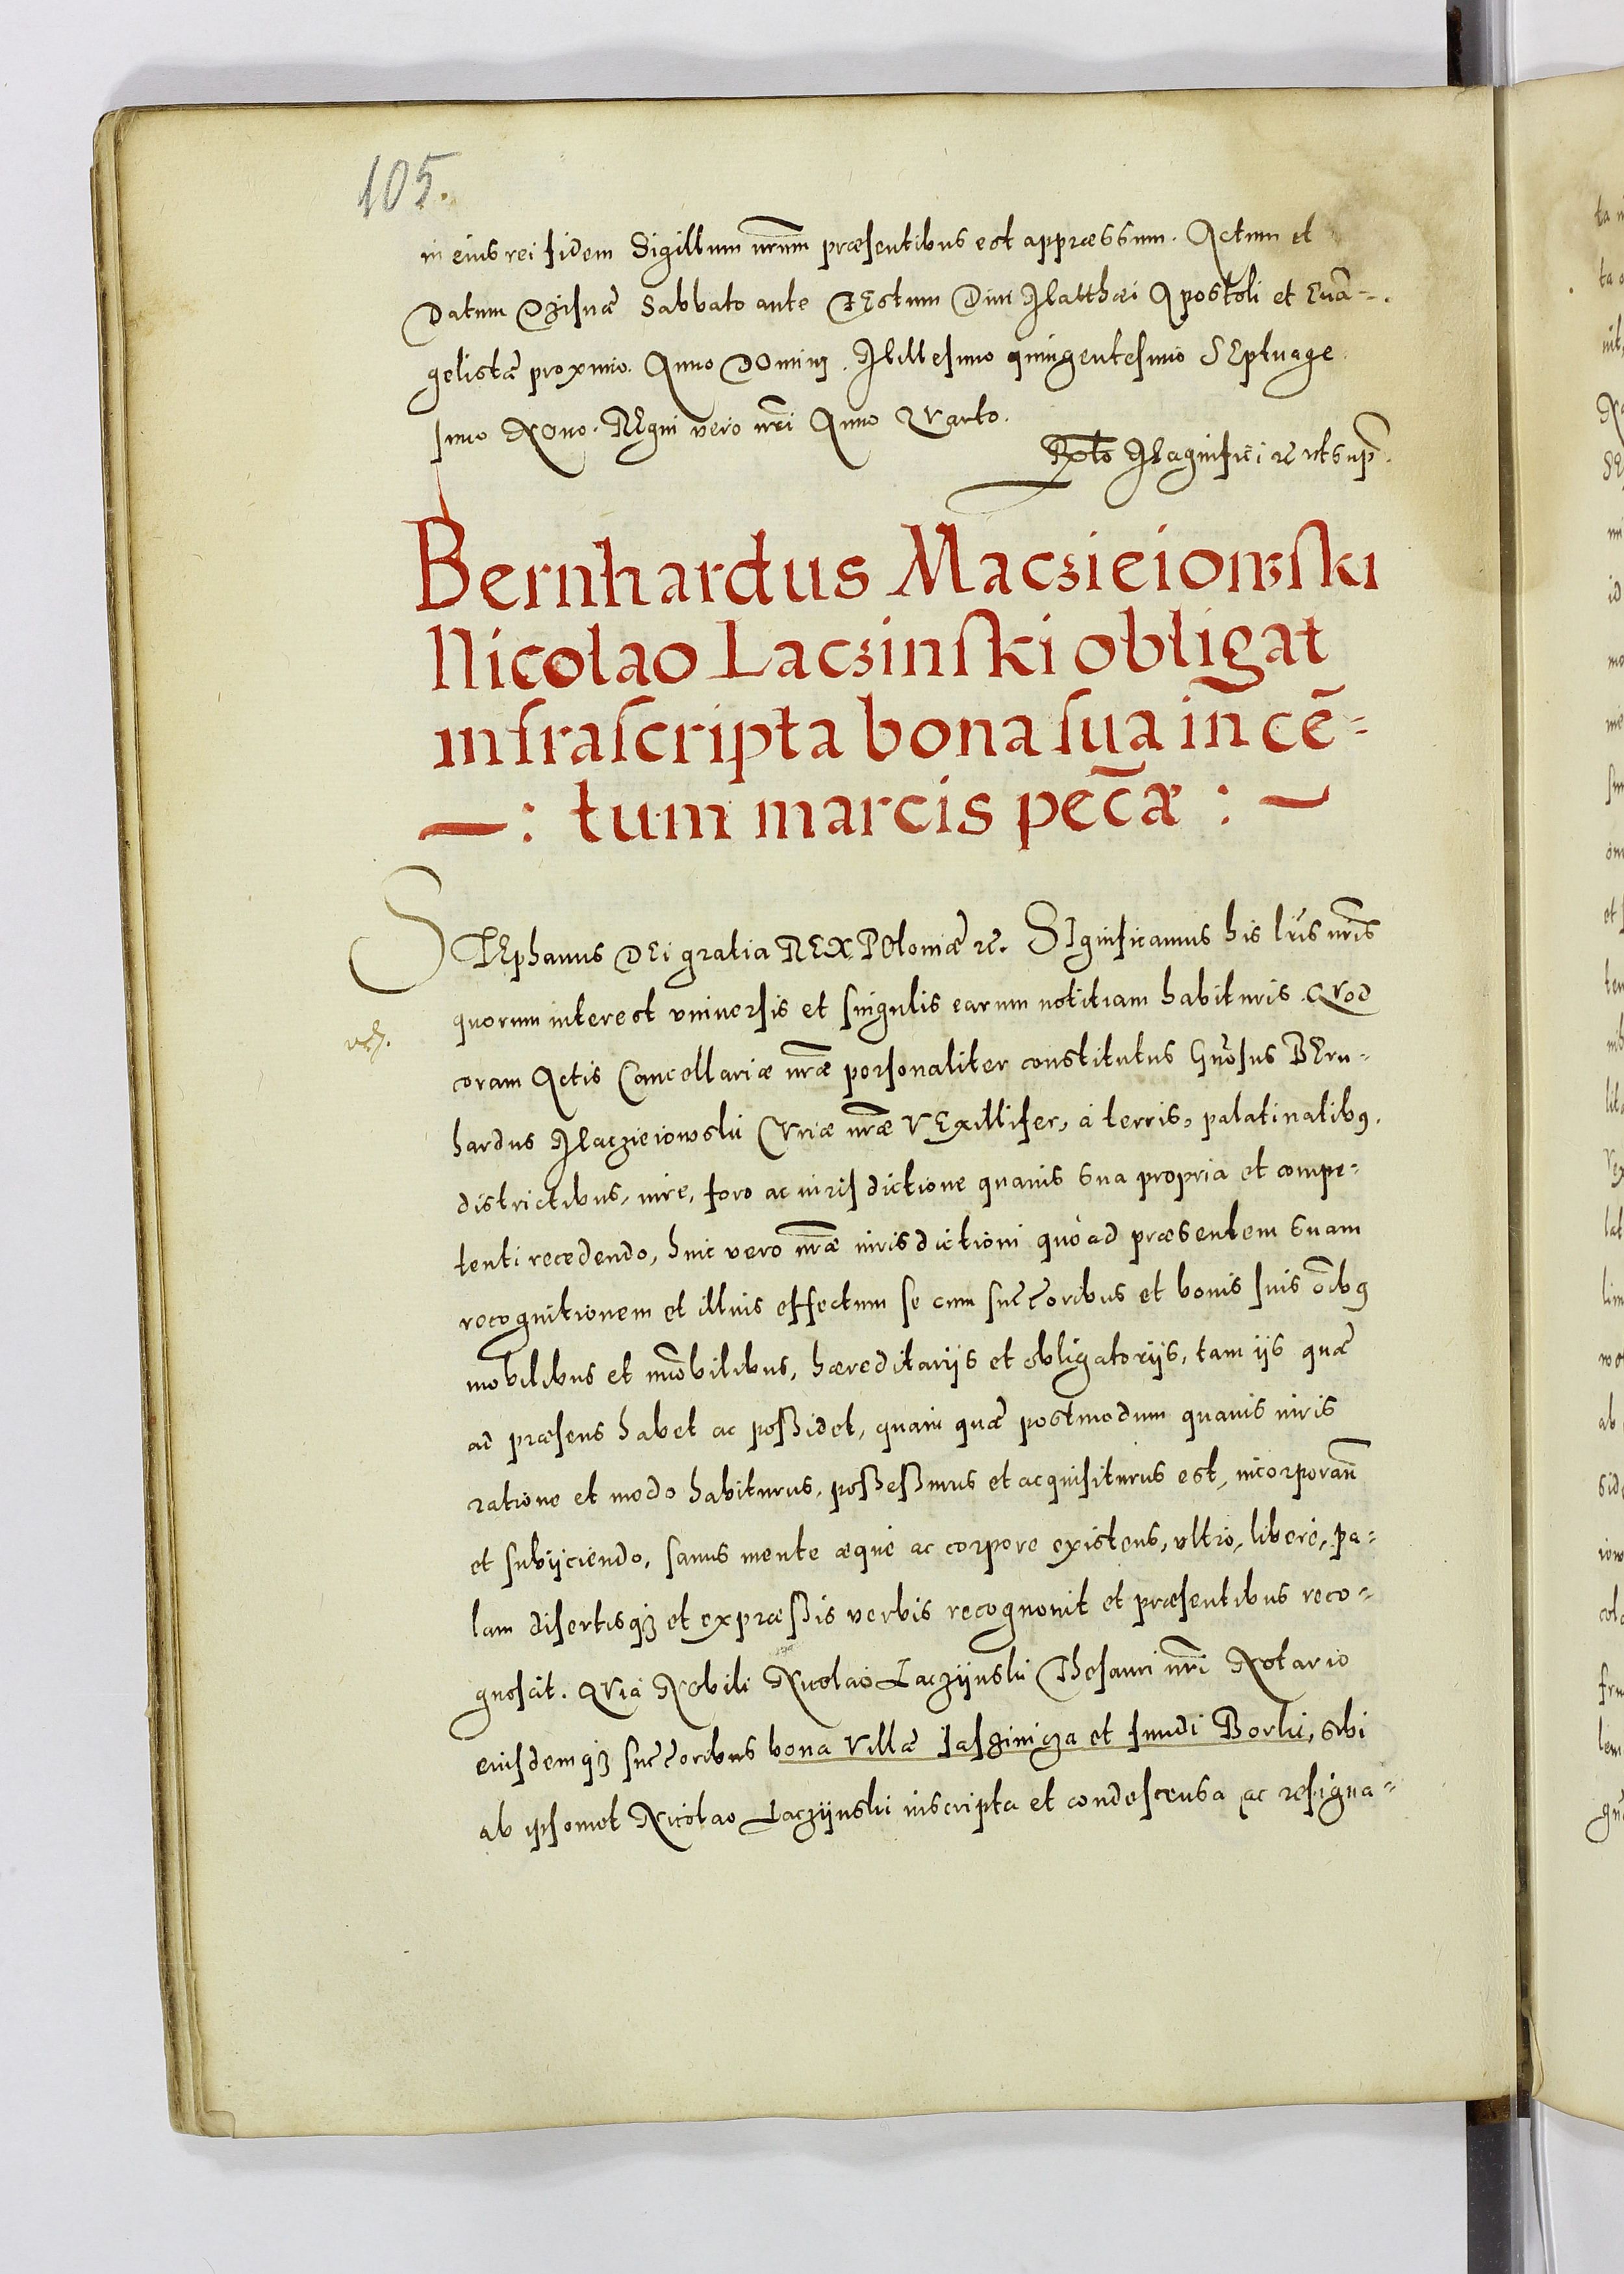 105.
in eius rei fidem Sigillum nr̃um præsentibus est appræssum. Actum et
Datum Dzisnæ Sabbato ante FEstum Diui Matthæi Apostoli et Euã=
gelistæ proximo. Anno DOminj. Millesimo quingentesimo SEptuage
simo NOno. REgni vero nr̃i Anno QVarto.
Rlõ Magnifici ꝛc̃ vt sup̃.
Bernhardus Maczieiowski
Nicolao Laczinski obligat
infrascripta bona sua in cē=
—: tum marcis pec̃æ : —
STEphanus DEi gratia REX POloniæ ꝛc̃. SIgnificamus his lr̃is nr̃is
quorum interest vniuersis et singulis earum notitiam habituris. QVod
coram Actis Cancellariæ nr̃æ personaliter constitutus Gñosus BErn=
hardus Maczieiowski CVriæ nr̃æ VExillifer, à terris, palatinatibꝰ,
districtibus, iure, foro ac iurisdictione quauis sua propria et compe=
tenti recedendo, huic vero nr̃æ iurisdictioni quò ad præsentem suam
recognitionem et illius effectum se cum succ̃oribus et bonis suis oĩbꝰ
mobilibus et im̃obilibus, hæreditarijs et obligatorijs, tam ijs quæ
ad præsens habet ac poßidet, quàm quæ postmodum quauis iuris
ratione et modo habiturus, poßeßurus et acquisiturus est, incorporan̄
et subijciendo, sanus mente æquè ac corpore existens, vltrò, liberè, pa=
lam disertisqꝫ et expræßis verbis recognouit et præsentibus reco=
gnoscit. QVia Nobili Nicolao Laczijnski Thesauri nr̃i Notario
eiusdemqꝫ succ̃oribus bona Villæ Jasziniza et fundi Borki, sibi
ab ipsomet Nicolao Laczijnski inscripta et condescensa ac resigna=